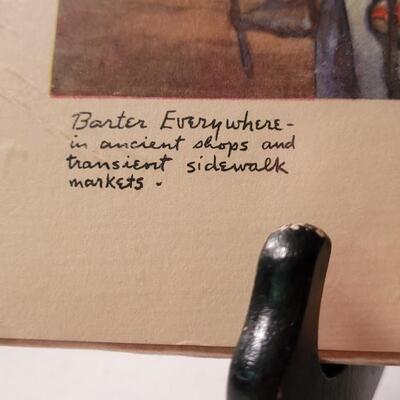 Barter Everywhere -
in ancient shops and
transient sidewalk
markets.